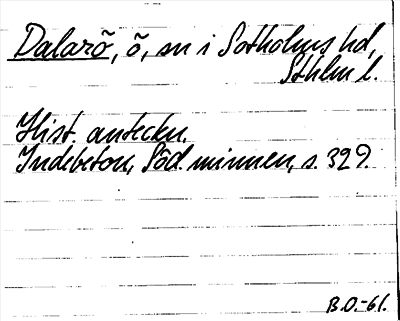 Dalarö, ö, sn i Sotholms hd,
Sthlm l.
Hist. anteckn.
Indebetou, Söd. minnen, s. 329.
B.O.-61.